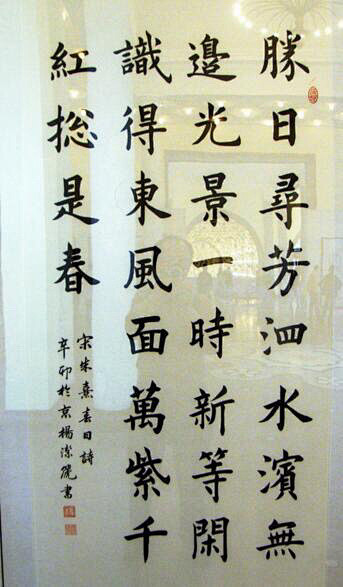 勝日尋芳泗水濱無
邊光景一時新等閑
識得東風面萬紫千
紅総是春
宋朱熹春日詩
辛卯於京楊潔
書